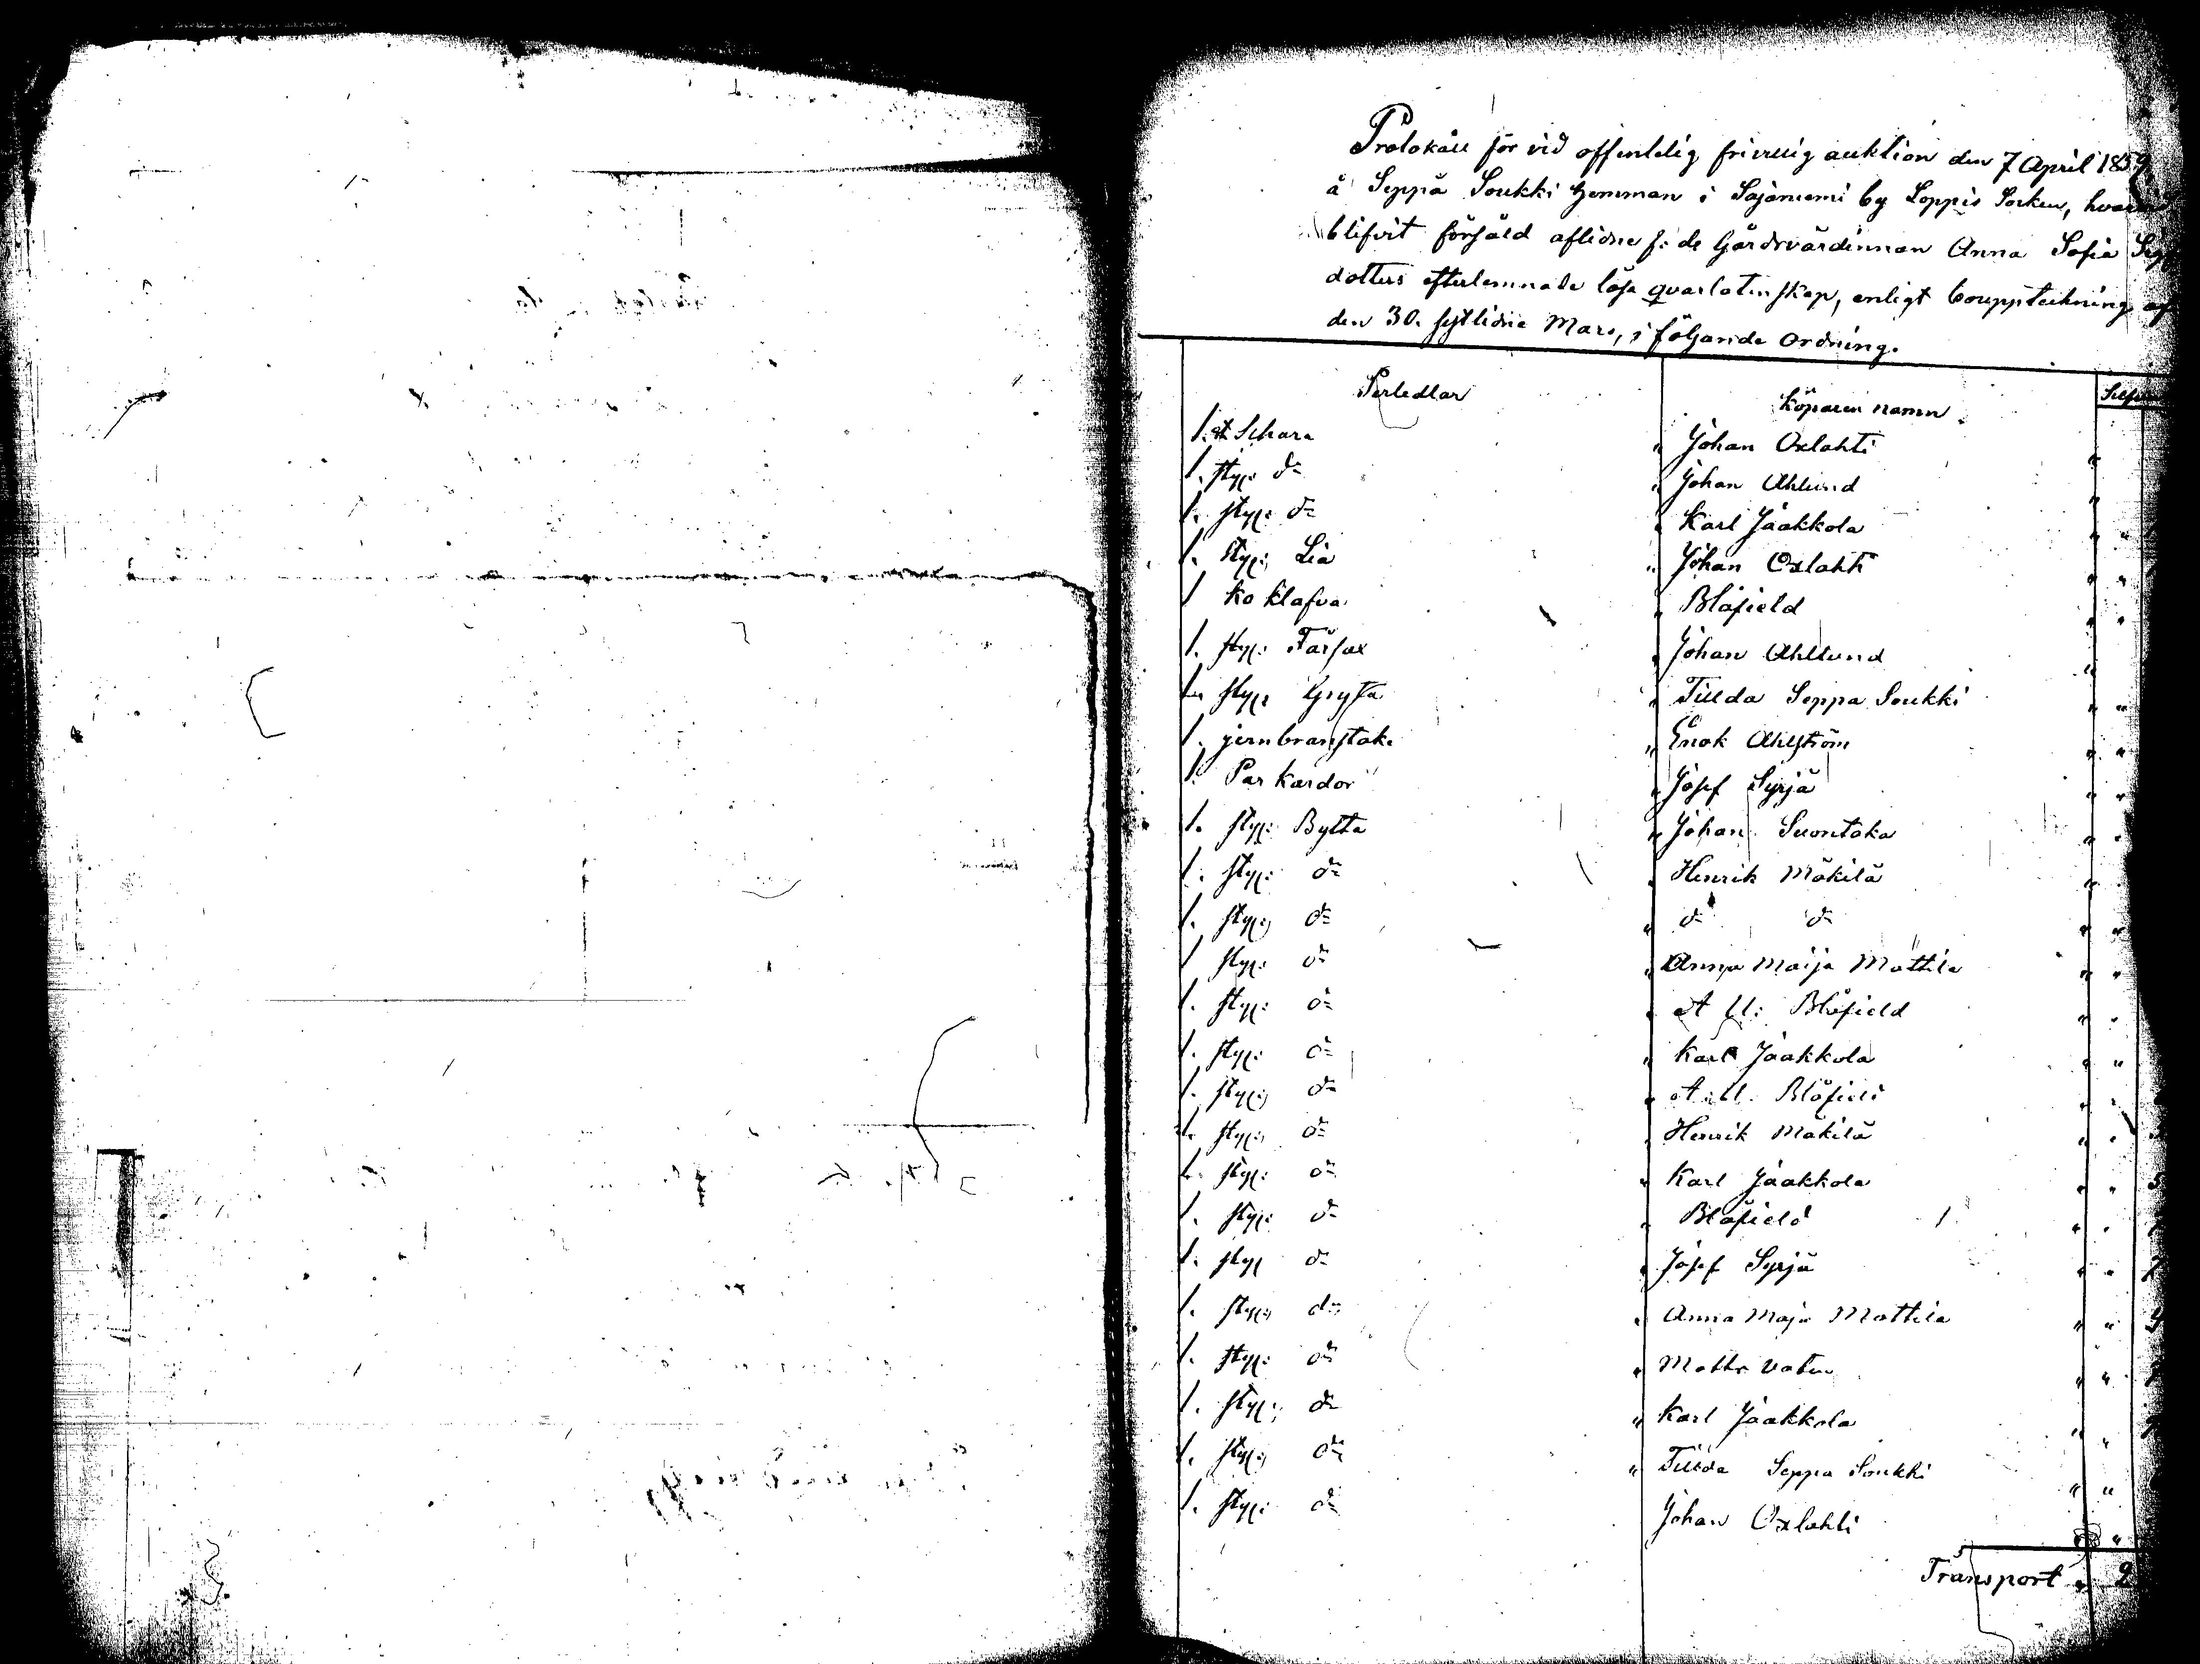 Protokåll för vid offentelig frivillig auktion den 7 April 1859
å Seppä Soukki hemman i Sajäniemi by Loppis Socken, hvar
blifvit försåld aflidne f: de Gårdvärdinnan Anna Sofia
dotters efterlemnade lösa qvarlotinskap, enligt bouppteckning af
den 30. sistlidne Mars, i följande ordning.
Persedlar Köparen namn
1. st Schara " Johan Oxlahti
1. styx: do " Johan Ahlund
1. styx: do " Karl Jaakkola
1. styx: Lia " Johan Oxlahti
1 ko klafva " Blåfield
1. styx: Fårsax " Johan Ahllund
1 styx: Gryta " Tilda Seppä Soukki
1. jernbranstake " Enok Ahlström
1. Par Kardor " Josef Syrjä
1. styx: Bytta " Johan Suontaka
1. styx: do " Henrik Mäkilä
1. styx: do " do do
1 styx: do " Anna Maija Mattila
1. styx: do " A U: Blåfield
1. styx: do " Karl Jaakkola
1. styx: do " A. U. Blåfield
1. styx: do " Henrik Mäkilä
1. styx: do " Karl Jaakkola
1. styx: do " Blåfield
1. styx do " Josef Syrjä
1. styx: do " Anna Maja Mattila
1. styx: do " Matts
1. styx: do " Karl Jaakkola
1. styx: do " Tilda Seppä Soukki
1. styx: do Johan Oxlahti
Transport " 2